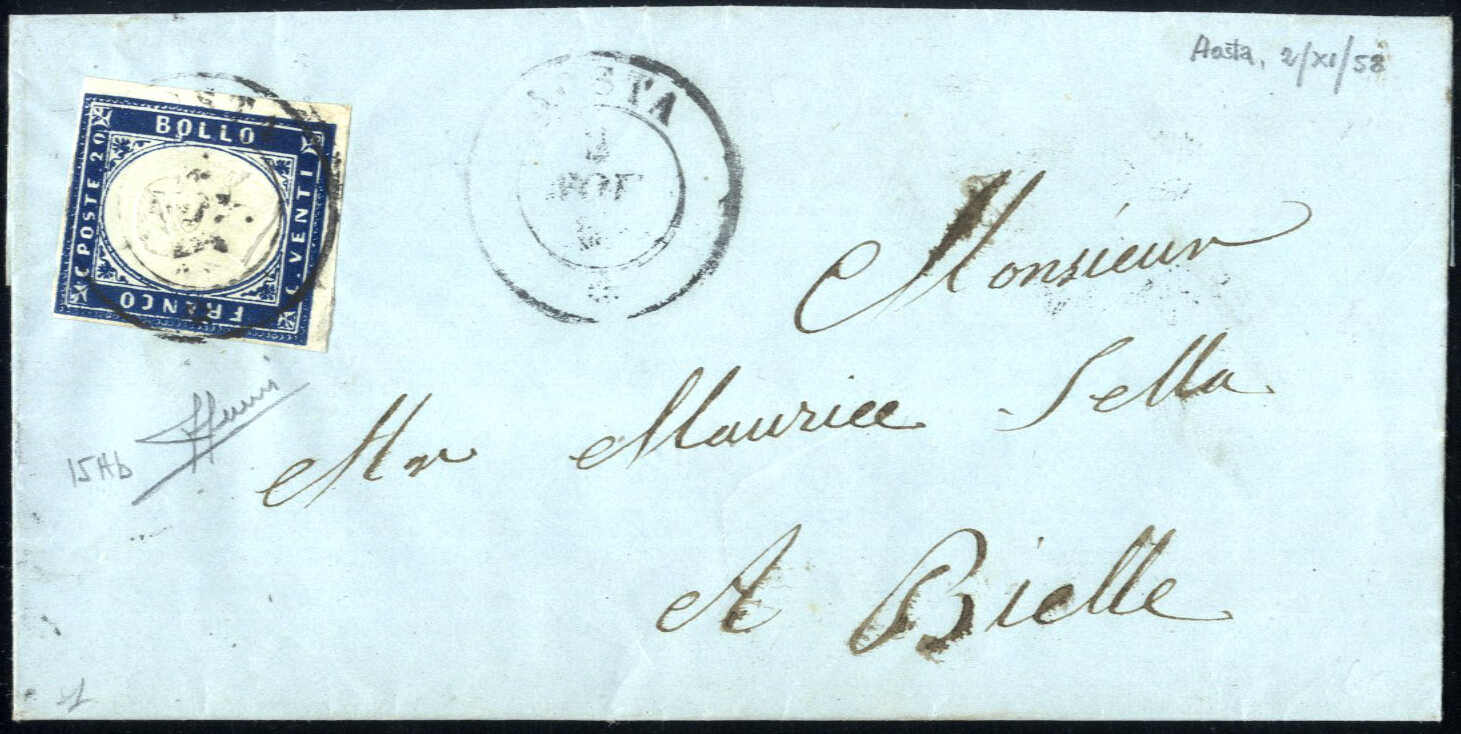 Aosta, 2/XI/58
AOSTA
2
BOLLO
C POSTE. 20
C. VENTI
FRANCO
Monsieur
Mr Maurice Sella
A Bielle
15Ab